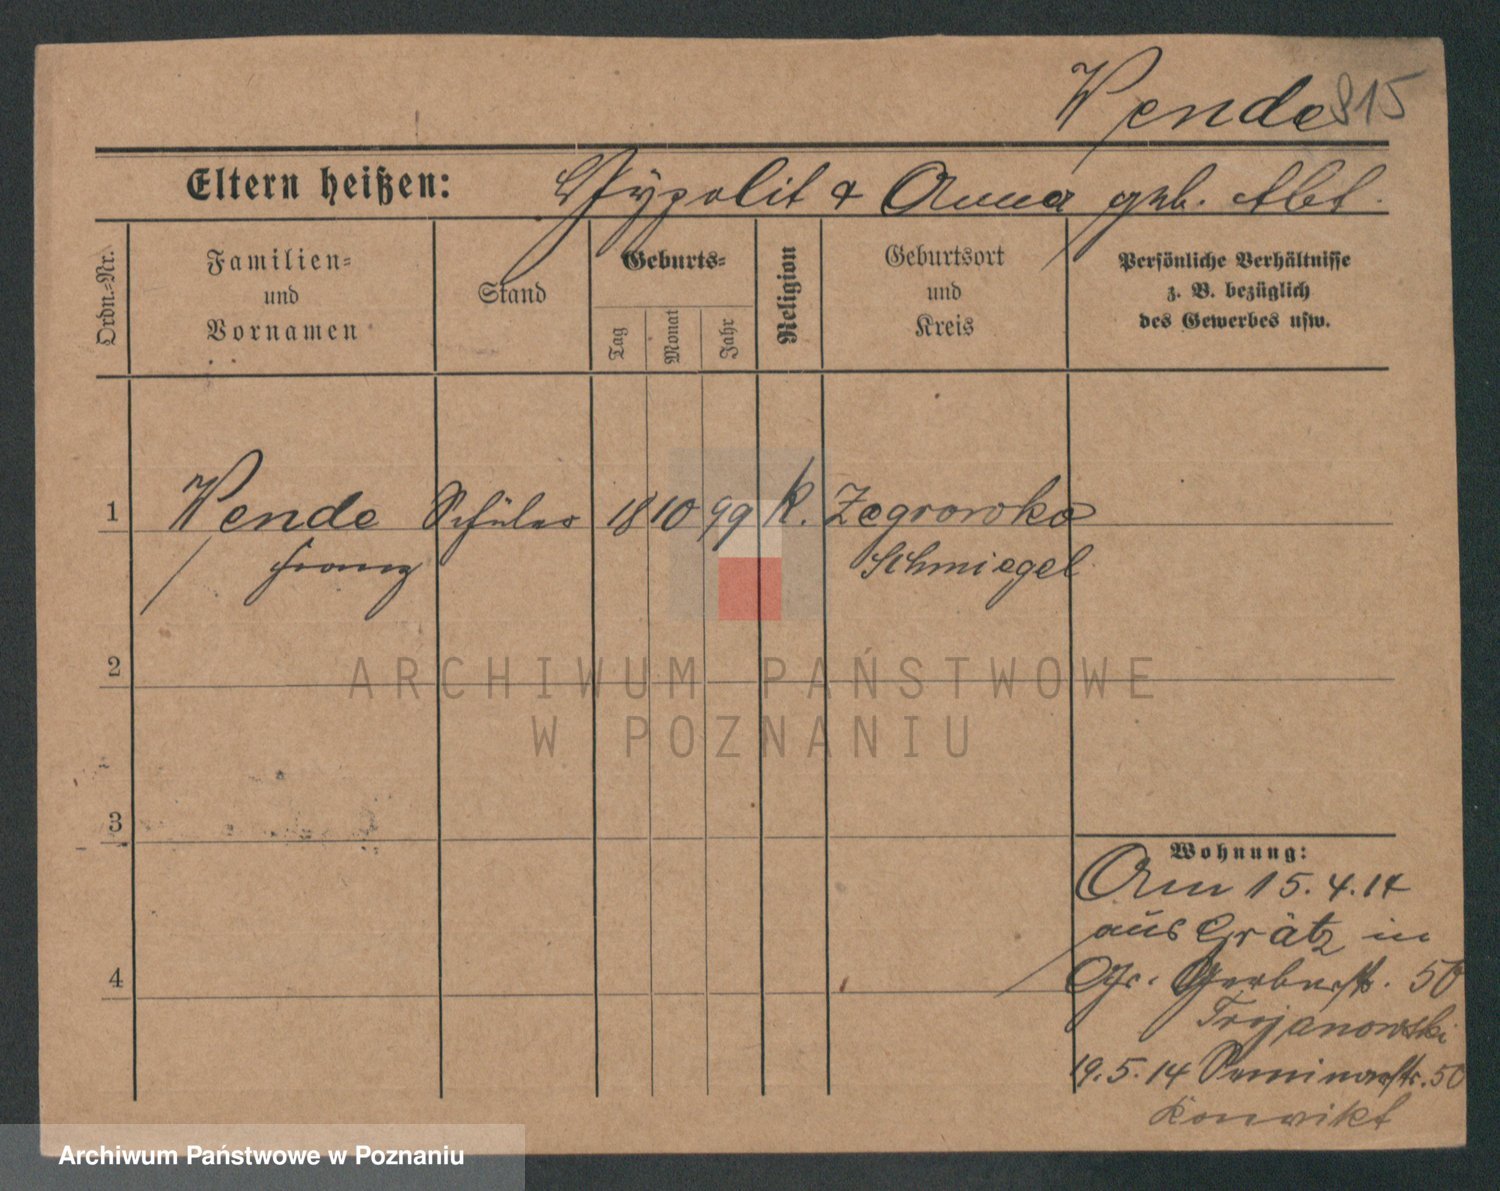 Wende 815
Eltern heißen: Hypolit & Anna geb. Abt.
Ordn.-Nr.
Familien=
und
Vornamen
Stand
Geburts=
Tag
Monat
Jahr
Religion
Geburtsort
und
Kreis
Persönliche Verhältnisse
z. B. bezüglich
des Gewerbes usw.
1 Wende Schüler 18 10 99 k. Zegrowko
Franz Schmiegel
2
ARCHIWUM PAŃSTWOWE
W POZNANIU
3
Wohnung:
Am 15.4.14
aus Grätz in
4
Gr. Gerberstr. 50
Trojanowski
19.5.14 Seminarstr. 50
Konvikt
Archiwum Państwowe w Poznaniu